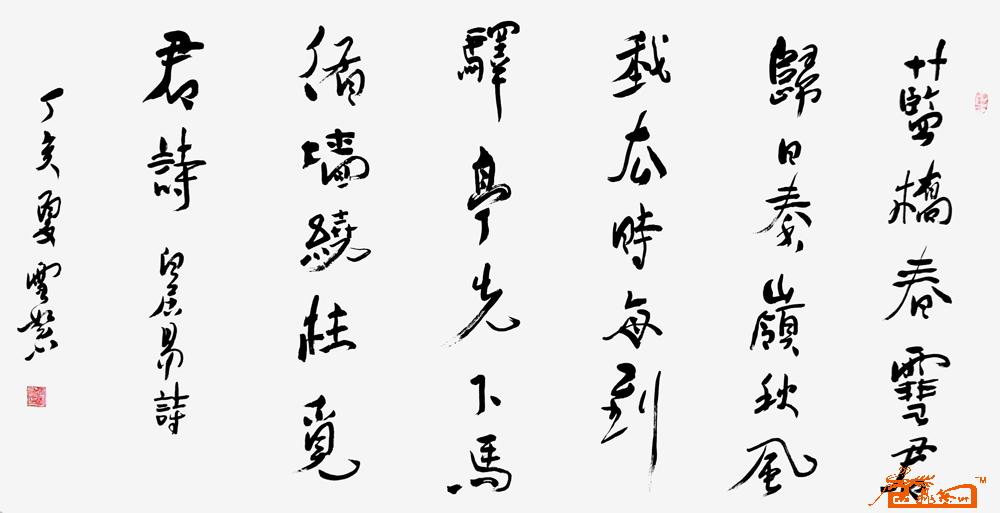 藍橋春雪君
歸日秦嶺秋風
我去時每到
驛亭先下馬
循墙繞柱覓
君詩 白居易詩
丁亥夏雲